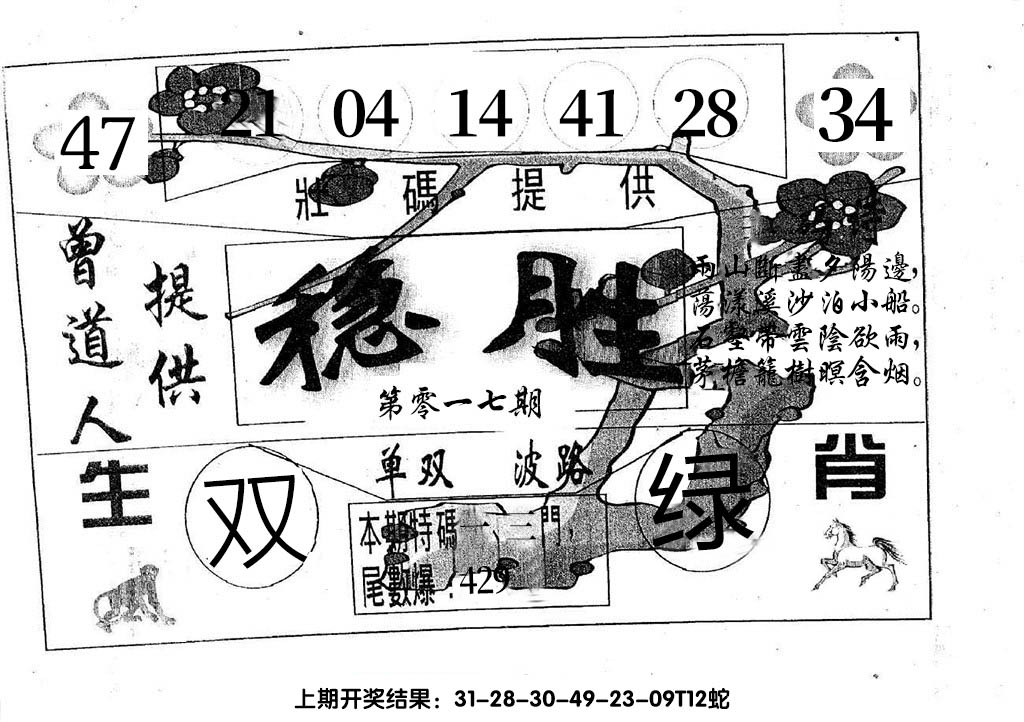 47 21 04 14 41 28 34
壯碼提供
特
曾道人
提供
稳胜
第零一七期
兩山斷靄夕陽邊，
蕩漾溪沙泊小船。
石壑帶雲陰欲雨，
茅檐籠樹暝含烟。
生肖
单双 波路
双
绿
本期特碼一、三門，
尾數爆：429
上期开奖结果：31-28-30-49-23-09T12蛇